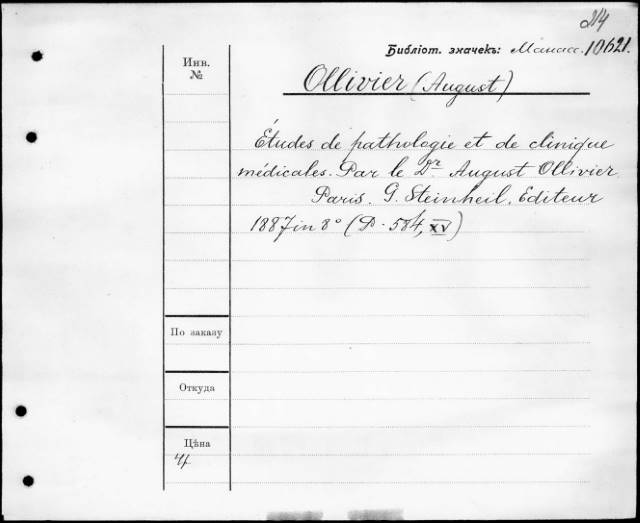 214
Библіот. значекъ: Манасс. 10621.
Инв.
№
Ollivier (August)
Études de pathologie et de clinique
médicales. Par le Dr August Ollivier.
Paris. G. Steinheil, Editeur
1887 in 8° (P. 584, XV)
По заказу
Откуда
Цѣна